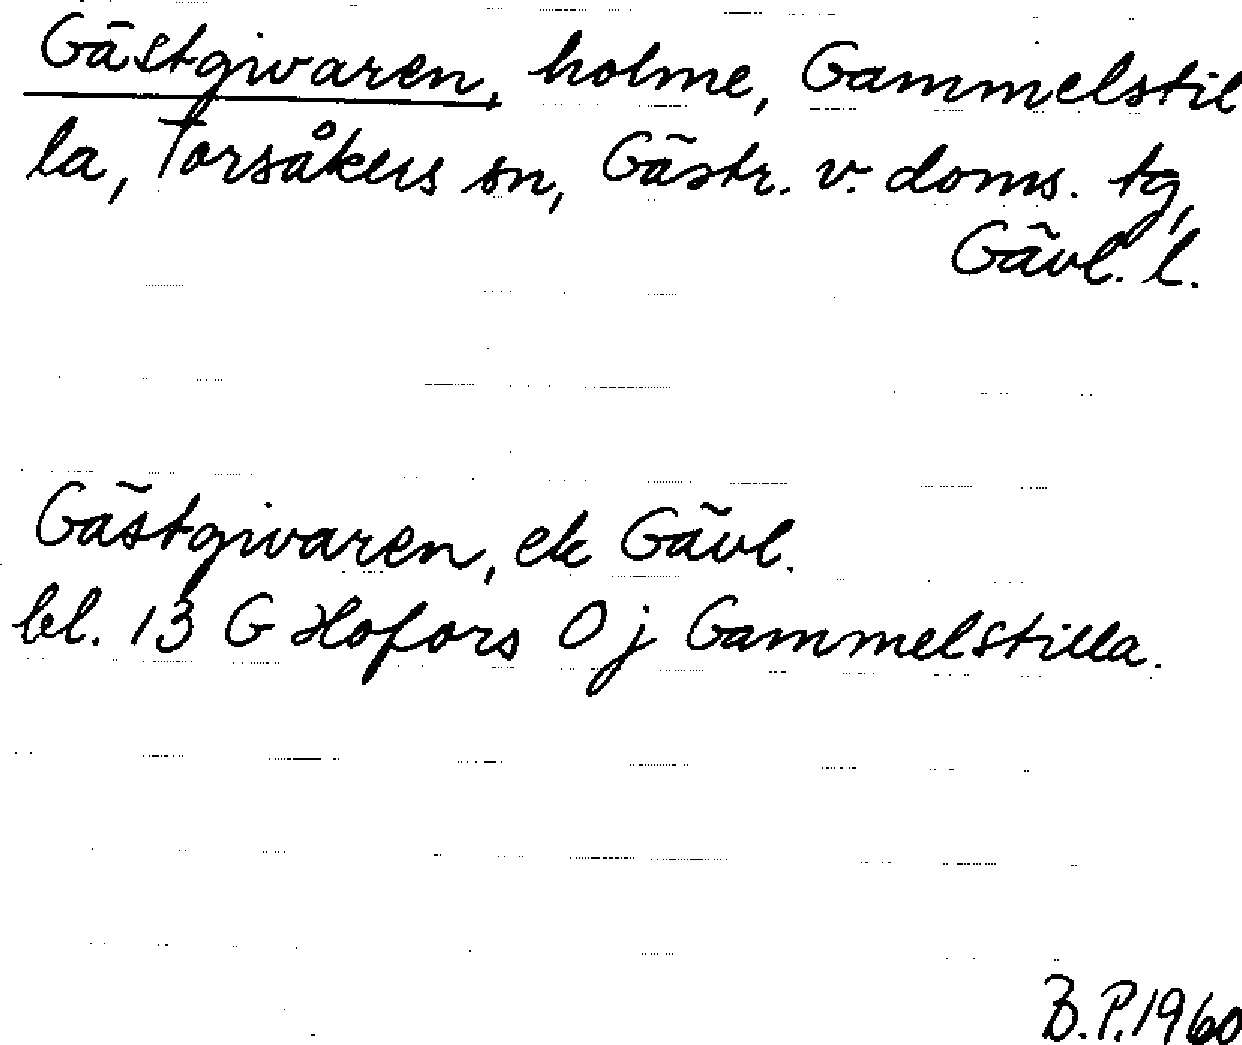 Gästgivaren, holme, Gammelstil
la, Torsåkers sn, Gästr. v. doms. tg,
Gävl. l.
Gästgivaren, ek Gävl.
bl. 13 G Hofors O j Gammelstilla.
B.P. 1960